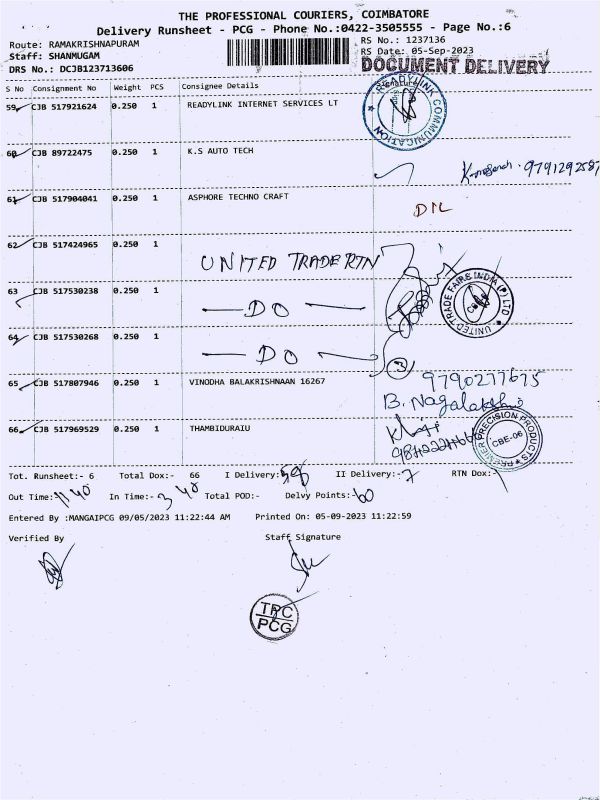 THE PROFESSIONAL COURIERS, COIMBATORE
Delivery Runsheet - PCG - Phone No.:0422-3505555 - Page No.:6
Route: RAMAKRISHNAPURAM
RS No.: 1237136
Staff: SHANMUGAM
RS Date: 05-Sep-2023
DRS No.: DCJB123713606
DOCUMENT DELIVERY
S No Consignment No Weight PCS Consignee Details Signature
59 CJB 517921624 0.250 1 READYLINK INTERNET SERVICES LT
READYLINK COMMUNICATION
60 CJB 89722475 0.250 1 K.S AUTO TECH
61 CJB 517904041 0.250 1 ASPHORE TECHNO CRAFT
D/L
62 CJB 517424965 0.250 1
UNITED TRADE RTN
63 CJB 517530238 0.250 1
— DO —
UNITED TRADE FAIRS INDIA (P) LTD
64 CJB 517530268 0.250 1
— DO —
3
65 CJB 517807946 0.250 1 VINODHA BALAKRISHNAAN 16267
9790277675
B. Nagalakshmi
66 CJB 517969529 0.250 1 THAMBIDURAIU
PREMIER PRECISION PRODUCTS
CBE-06
Tot. Runsheet:- 6 Total Dox:- 66 I Delivery: II Delivery:- 7 RTN Dox:-
Out Time: 11 40 In Time:- 3 40 Total POD:- Delvy Points:- 60
Entered By :MANGAIPCG 09/05/2023 11:22:44 AM Printed On: 05-09-2023 11:22:59
Verified By Staff Signature
TPC
PCG